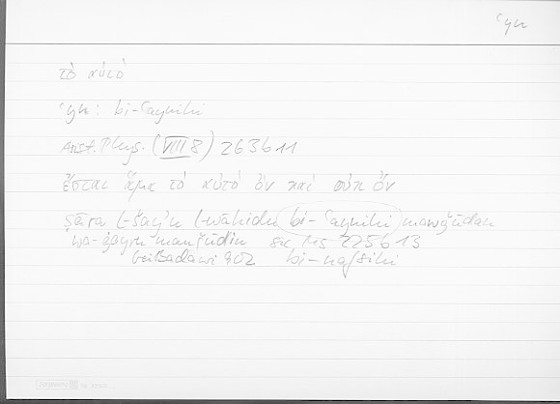 ʿyn
τὸ αὐτό
ʿyn: bi-ʿaynihi
Arist. Phys. (VIII 8) 263b11
ἔσται ἅμα τὸ αὐτὸ ὂν καὶ οὐκ ὄν
ṣāra l-šayʾu l-wāḥidu bi-ʿaynihi mawǧūdan
wa-ġayra mawǧūdin sic Ms 225b13
bei Badawi 902 bi-nafsihi